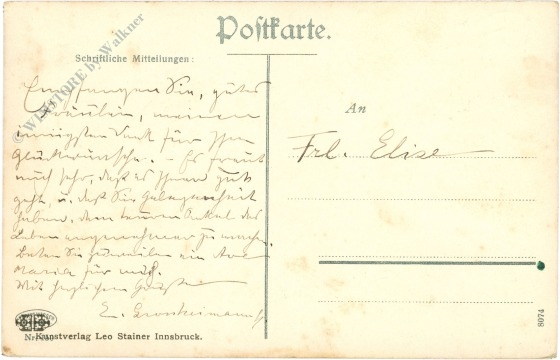 Postkarte.
Schriftliche Mitteilungen:
© WEBSTORE by Walkner
Empfangen Sie, gutes
Fräulein, meinen
innigsten Dank für Ihre
Glückwünsche. – Es freut
mich sehr, daß es Ihnen gut
geht, u. daß Sie Gelegenheit
haben, dem teuren Onkel das
Leben angenehmer zu machen.
Beten Sie zuweilen ein Ave
Maria für mich.
Mit herzlichen Grüßen
E.
An
Frl. Elise
Kunstverlag Leo Stainer Innsbruck.
8074